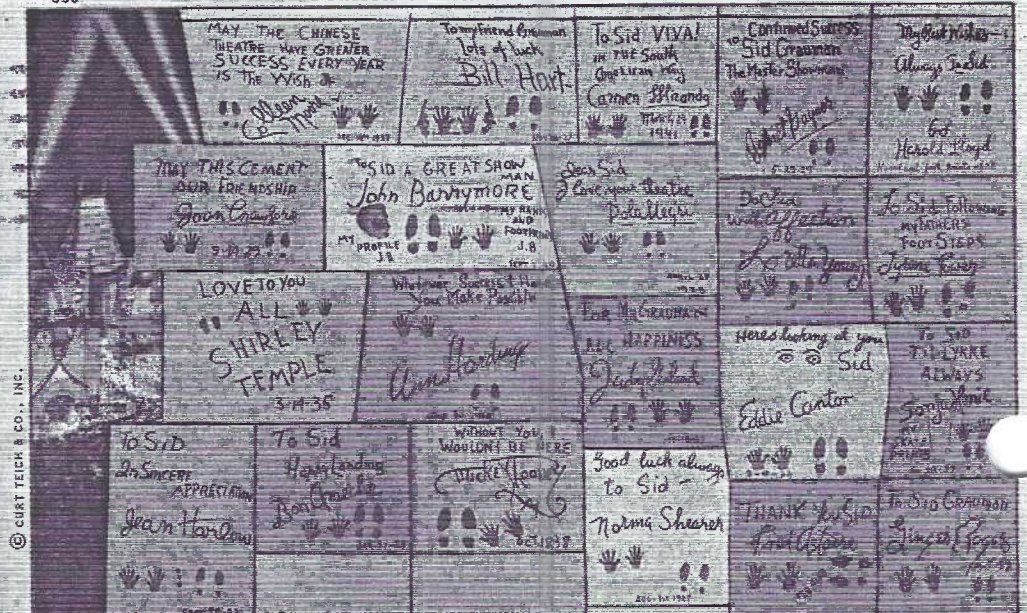 MAY THE CHINESE
THEATRE HAVE GREATER
SUCCESS EVERY YEAR
IS THE WISH OF
Colleen Moore
To my friend Grauman
lots of luck
Bill Hart.
To Sid VIVA!
IN THE South
American Way
Carmen Miranda
MARCH 24
1941
To Continued Success
Sid Grauman
The Master Showman
5-23-29
My Best Wishes
Always To Sid
Harold Lloyd
MAY THIS CEMENT
OUR FRIENDSHIP
Joan Crawford
9-14-29
To SID A GREAT SHOW
MAN
John Barrymore
MY HANDS
AND
FOOTPRINTS
J.B
MY PROFILE
J.B
Dear Sid
I love your theatre
Pola Negri
To Sid
with Affection
Loretta Young
To Sid Following
MY FATHERS
FOOT STEPS
Tyrone Power
LOVE TO YOU
ALL
SHIRLEY
TEMPLE
3-14-35
Whatever Success I Have
You Make Possible
Ann Harding
FOR MR GRAUMAN
ALL HAPPINESS
Judy Garland
Here's looking at you
Sid
Eddie Cantor
TO SID
TIL LYKKE
ALWAYS
Sonja Henie
MY
SKATE
PRINTS
To SID
In SINCERE
APPRECIATION
Jean Harlow
To Sid
Happy Landing
Don Ameche
WITHOUT YOU
WOULDN'T BE HERE
Mickey Rooney
OCT. 1938
Good luck always
to Sid -
Norma Shearer
THANK You SID
Fred Astaire
To SID GRAUMAN
Ginger Rogers
© CURT TEICH & CO., INC.